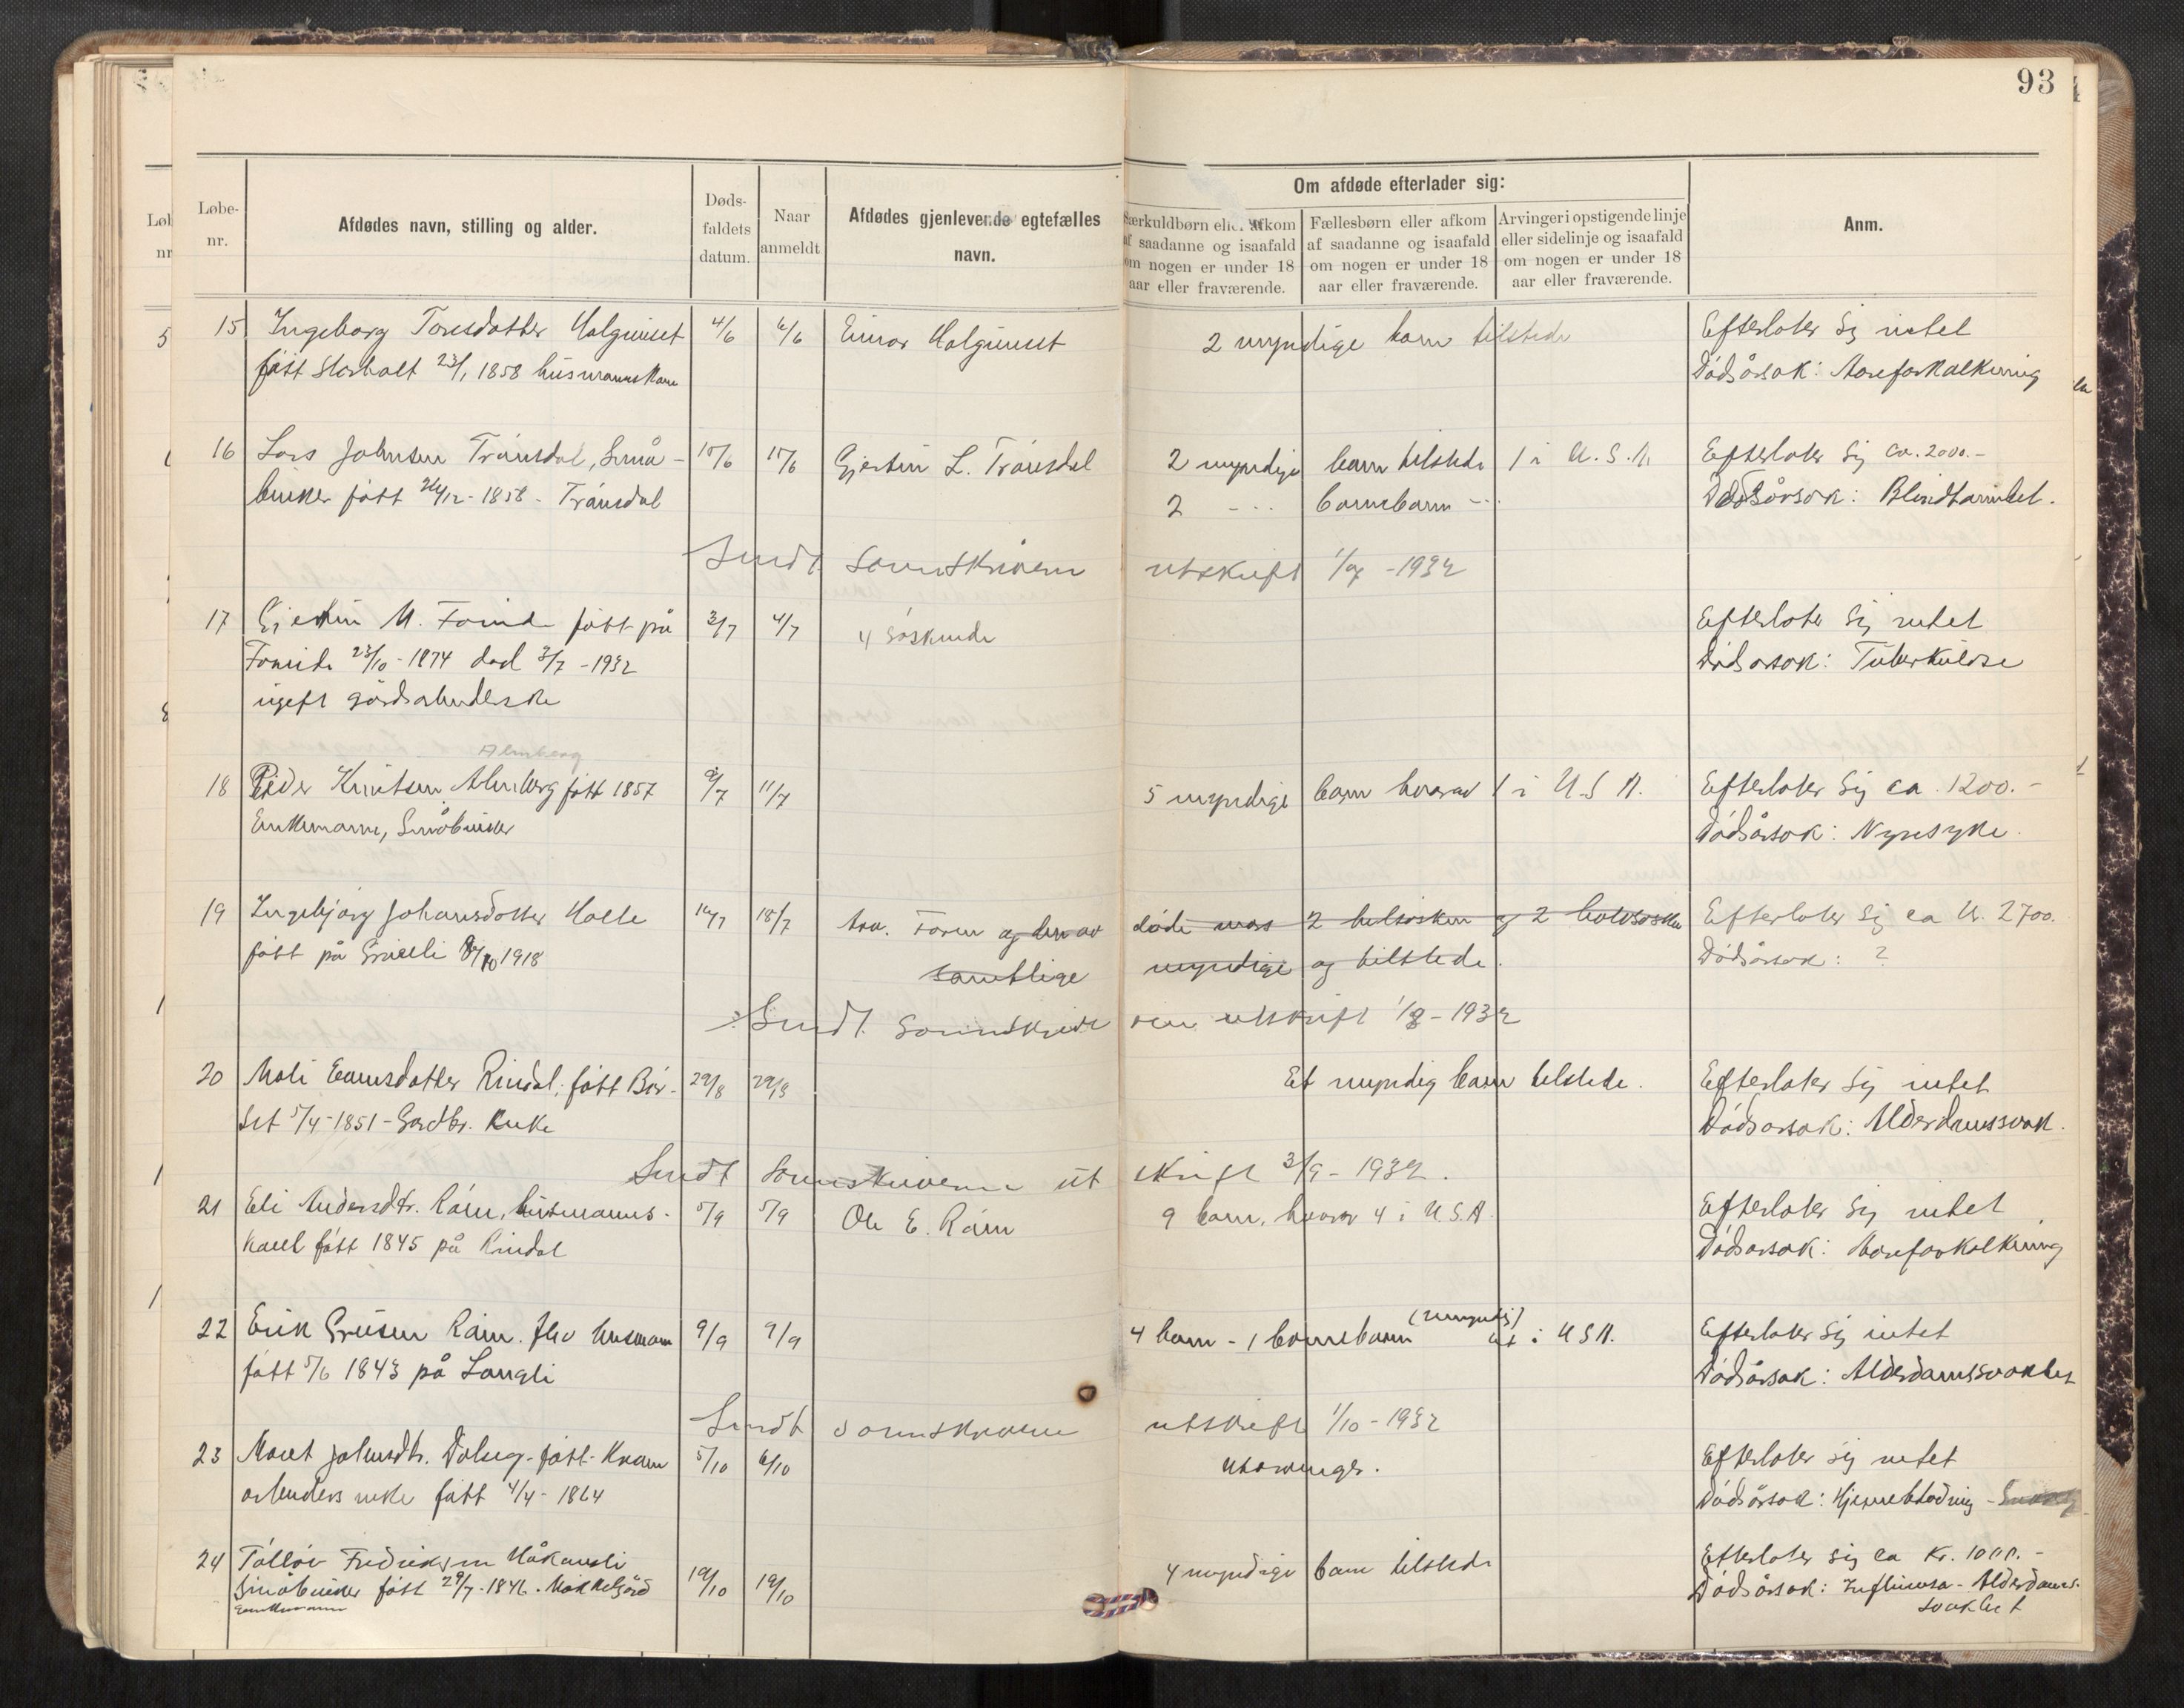 93
Løbe-
nr.
Afdødes navn, stilling og alder.
Døds-
faldets
datum.
Naar
anmeldt
Afdødes gjenlevende egtefælles
navn.
Om afdøde efterlader sig:
Særkuldbørn eller afkom
af saadanne og isaafald
om nogen er under 18
aar eller fraværende.
Fællesbørn eller afkom
af saadanne og isaafald
om nogen er under 18
aar eller fraværende.
Arvinger i opstigende linje
eller sidelinje og isaafald
om nogen er under 18
aar eller fraværende.
Anm.
15 Ingeborg Toresdatter Halgunset 4/6 6/6 Einar Halgunset 2 myndige barn tilstede Efterlater sig intet
født Storholt 23/1 1858 husmannskone Dødsårsak: Aareforkalkning
16 Lars Johnsen Trønsdal, Små- 15/6 15/6 Gjertru L. Trønsdal 2 myndige barn tilstede 1 i U.S.A. Efterlater sig ca. 2000.-
bruker født 26/12 - 1858 - Trønsdal 2 -- barnebarn -- Dødsårsak: Blindtarmbet.
Sendt Sorenskriveren utskrift 1/7 - 1932
17 M. født på 2/7 4/7 4 Søskende Efterlater sig intet
23/10 - 1874 død 2/7 - 1932 Dødsårsak: Tuberkulose
ugift gårdsarbeiderske
Almberg
18 Peder Knutsen Almberg født 1857 9/7 11/7 5 myndige barn hvorav 1 i U.S.A. Efterlater sig ca. 1200.-
Enkemann, Småbruker Dødsårsak: Nyresyke.
19 Ingebjørg Johansdatter Halle 16/7 18/7 Faren og den av døde mors 2 helsøsken og 2 halvsøsken Efterlater sig ca kr. 2700.
født på 1918 samtlige myndige og tilstede. Dødsårsak: ?
Sendt Sorenskriveren utskrift 1/8 - 1932
20 Mali Rindal, født Bør- 29/8 29/8 Et myndig barn tilstede. Efterlater sig intet
set 5/4 - 1851 - Gardbr. Enke Dødsårsak: Alderdomssvak.
Sendt Sorenskriveren utskrift 3/9 - 1932.
21 Eli Andersdtr. Røen, husmanns- 5/9 5/9 Ole E. Røen 9 barn, hvorav 4 i U.S.A. Efterlater sig intet
kone født 1845 på Rindal Dødsårsak: Aareforkalkning
22 Erik Røen. fhv husmann 9/9 9/9 4 barn - 1 barnebarn (myndig) i U.S.A. Efterlater sig intet
født 5/6 1843 på Langli Dødsårsak: Alderdomssvakhet
Sendt sorenskriveren utskrift 1/10 - 1932
23 Marit Johnsdtr. Dalseg - født - Kvam 5/10 6/10 Utarvinger. Efterlater sig intet
arbeiders enke født 4/4 - 1864 Dødsårsak: Hjerneblødning
24 Tølløv Fredriksen Håkansli 19/10 19/10 4 myndige barn tilstede Efterlater sig ca kr. 1000.-
Småbruker født 29/7 - 1846. Dødsårsak: Influensa - Alderdoms-
Enkemann svakhet